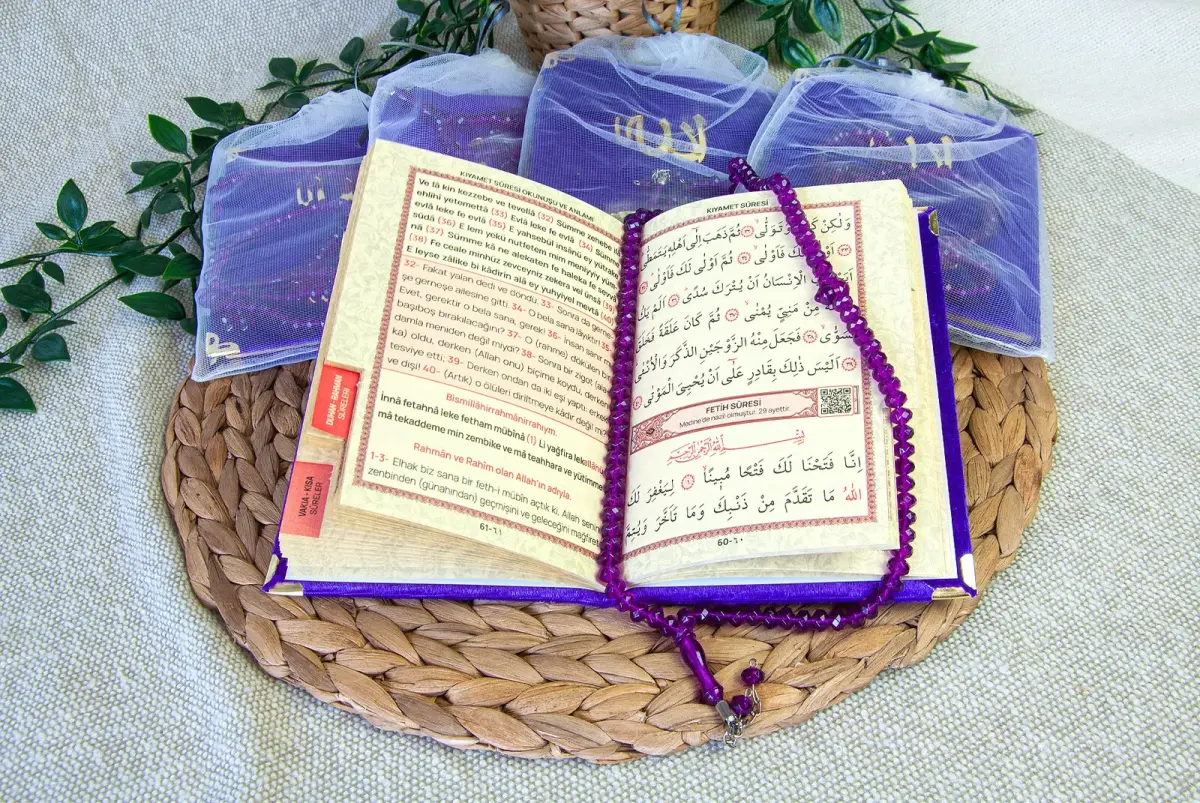 KIYAMET SÛRESİ OKUNUŞU VE ANLAMI
Ve lâ kin kezzebe ve tevellâ (32) Sümme zehebe
ehlihî yetemettâ (33) Evlâ leke fe evlâ (34) Sümme
evlâ leke fe evlâ (35) E yahsebül insânü ey yütrake
südâ (36) E lem yekü nutfetem mim meniyyiy yüm
nâ (37) Sümme kâ ne alekaten fe haleka fe sevvâ
(38) Fe ceale minhüz zevceyniz zekera vel ünsâ (39)
E leyse zâlike bi kâdirin alâ ey yuhyiyel mevtâ (40)
32- Fakat yalan dedi ve döndü. 33- Sonra da gerne
şe gerneşe ailesine gitti. 34- O bela sana lâyıktır!
Evet, gerektir o bela sana, gerek! 36- İnsan sanır mı
başıboş bırakılacağını? 37- O (rahme) dökülen bir
damla meniden değil miydi? 38- Sonra bir zigot (ale
ka) oldu, derken (Allah onu) biçime koydu, derken
tesviye etti; 39- Derken ondan da iki eşi yaptı: erkek
ve dişi! 40- (Artık) o ölüleri diriltmeye kâdir değil
Bismillâhirrahmânirrahıym.
İnnâ fetahnâ leke fetham mübînâ (1) Li yağfira lekallânü
mâ tekaddeme min zembike ve mâ teahhara ve yütimme
Rahmân ve Rahîm olan Allah'ın adıyla.
1-3- Elhak biz sana bir feth-i mübîn açtık ki, Allah senin
zenbinden (günahından) geçmişini ve geleceğini mağfiret
61-٦١
DUHAN - RAHMAN
SÛRELERİ
VAKIA - KISA
SÛRELER
KIYAMET SÛRESİ
وَلٰكِنْ وَتَوَلّٰىۙ ﴿٣٢﴾ ثُمَّ ذَهَبَ اِلٰٓى اَهْلِه۪ يَتَمَطّٰىۜ
﴿٣٣﴾ لَكَ فَاَوْلٰىۙ ﴿٣٤﴾ ثُمَّ اَوْلٰى لَكَ فَاَوْلٰىۜ ﴿٣٥﴾
الْاِنْسَانُ اَنْ يُتْرَكَ سُدًىۜ ﴿٣٦﴾ اَلَمْ يَكُ
مِنْ مَنِيٍّ يُمْنٰىۙ ﴿٣٧﴾ ثُمَّ كَانَ عَلَقَةً فَخَلَقَ
فَسَوّٰىۙ ﴿٣٨﴾ فَجَعَلَ مِنْهُ الزَّوْجَيْنِ الذَّكَرَ وَالْاُنْثٰىۜ
﴿٣٩﴾ اَلَيْسَ ذٰلِكَ بِقَادِرٍ عَلٰٓى اَنْ يُحْيِيَ الْمَوْتٰى
FETİH SÛRESİ
Medine'de nazil olmuştur. 29 ayettir.
بِسْمِ اللّٰهِ الرَّحْمٰنِ الرَّحٖيمِ
اِنَّا فَتَحْنَا لَكَ فَتْحًا مُب۪ينًاۙ ﴿١﴾ لِيَغْفِرَ لَكَ
اللّٰهُ مَا تَقَدَّمَ مِنْ ذَنْبِكَ وَمَا تَاَخَّرَ وَيُتِمَّ
60-٦٠